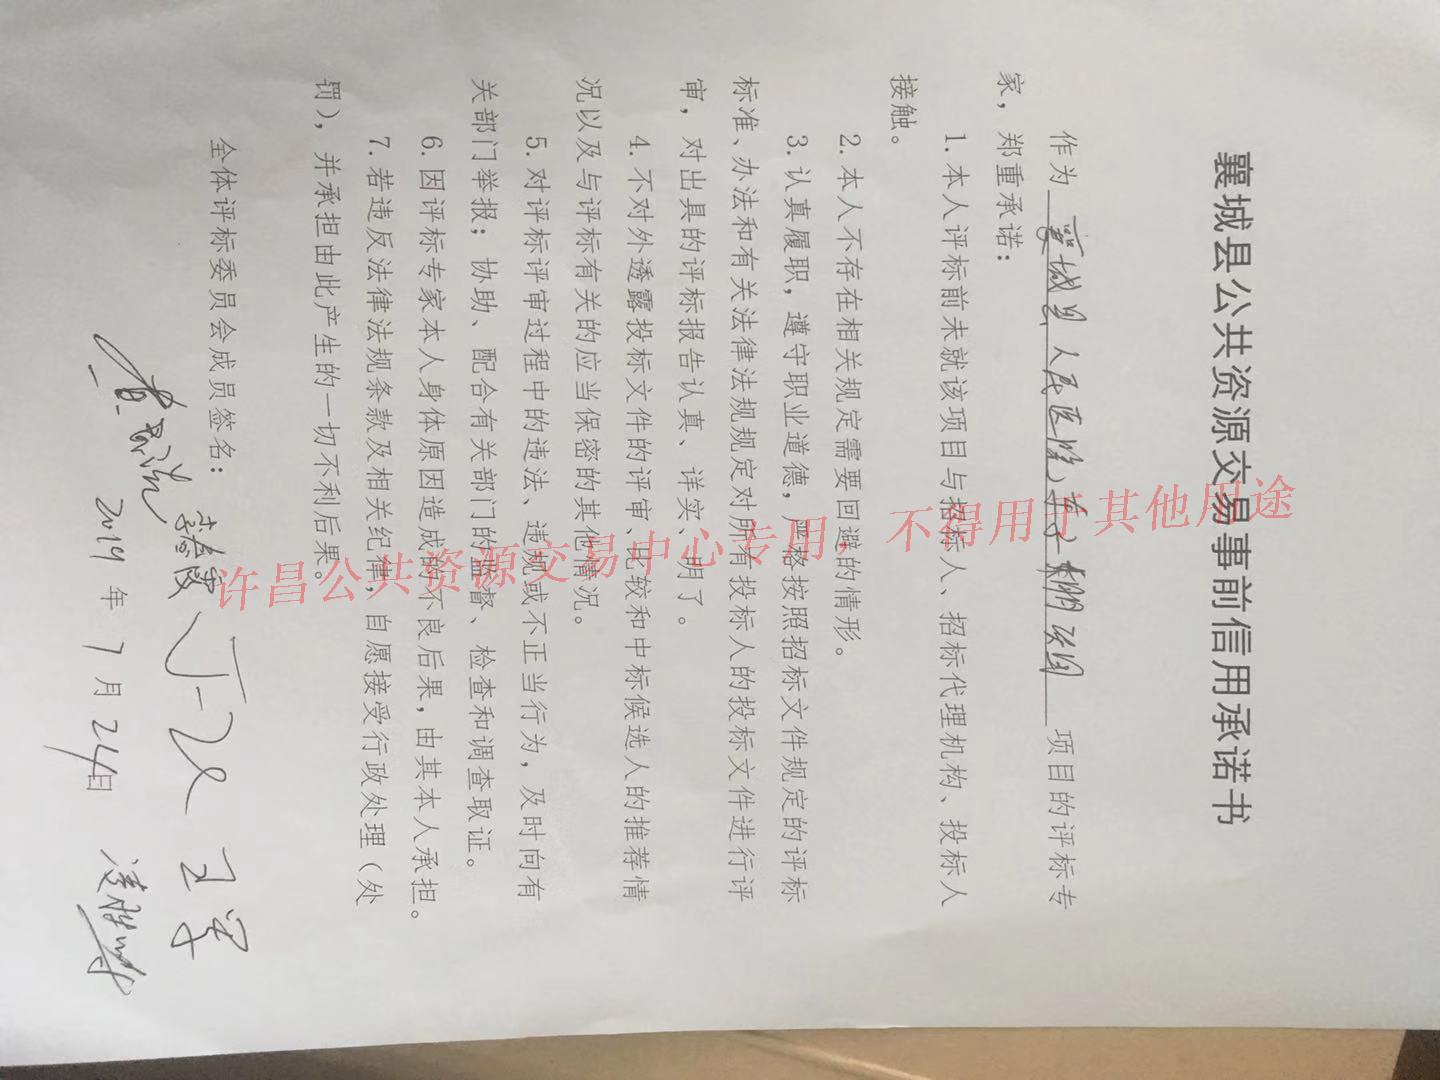 襄城县公共资源交易事前信用承诺书
作为 襄城县人民医院 项目的评标专
家，郑重承诺：
1. 本人评标前未就该项目与招标人、招标代理机构、投标人
接触。
2. 本人不存在相关规定需要回避的情形。
3. 认真履职，遵守职业道德，严格按照招标文件规定的评标
标准、办法和有关法律法规规定对所有投标人的投标文件进行评
审，对出具的评标报告认真、详实、明了。
4. 不对外透露投标文件的评审、比较和中标候选人的推荐情
况以及与评标有关的应当保密的其他情况。
5. 对评标评审过程中的违法、违规或不正当行为，及时向有
关部门举报；协助、配合有关部门的监督、检查和调查取证。
6. 因评标专家本人身体原因造成的不良后果，由其本人承担。
7. 若违反法律法规条款及相关纪律，自愿接受行政处理（处
罚），并承担由此产生的一切不利后果。
全体评标委员会成员签名：
2019 年 7 月 24 日
许昌公共资源交易中心专用，不得用于其他用途